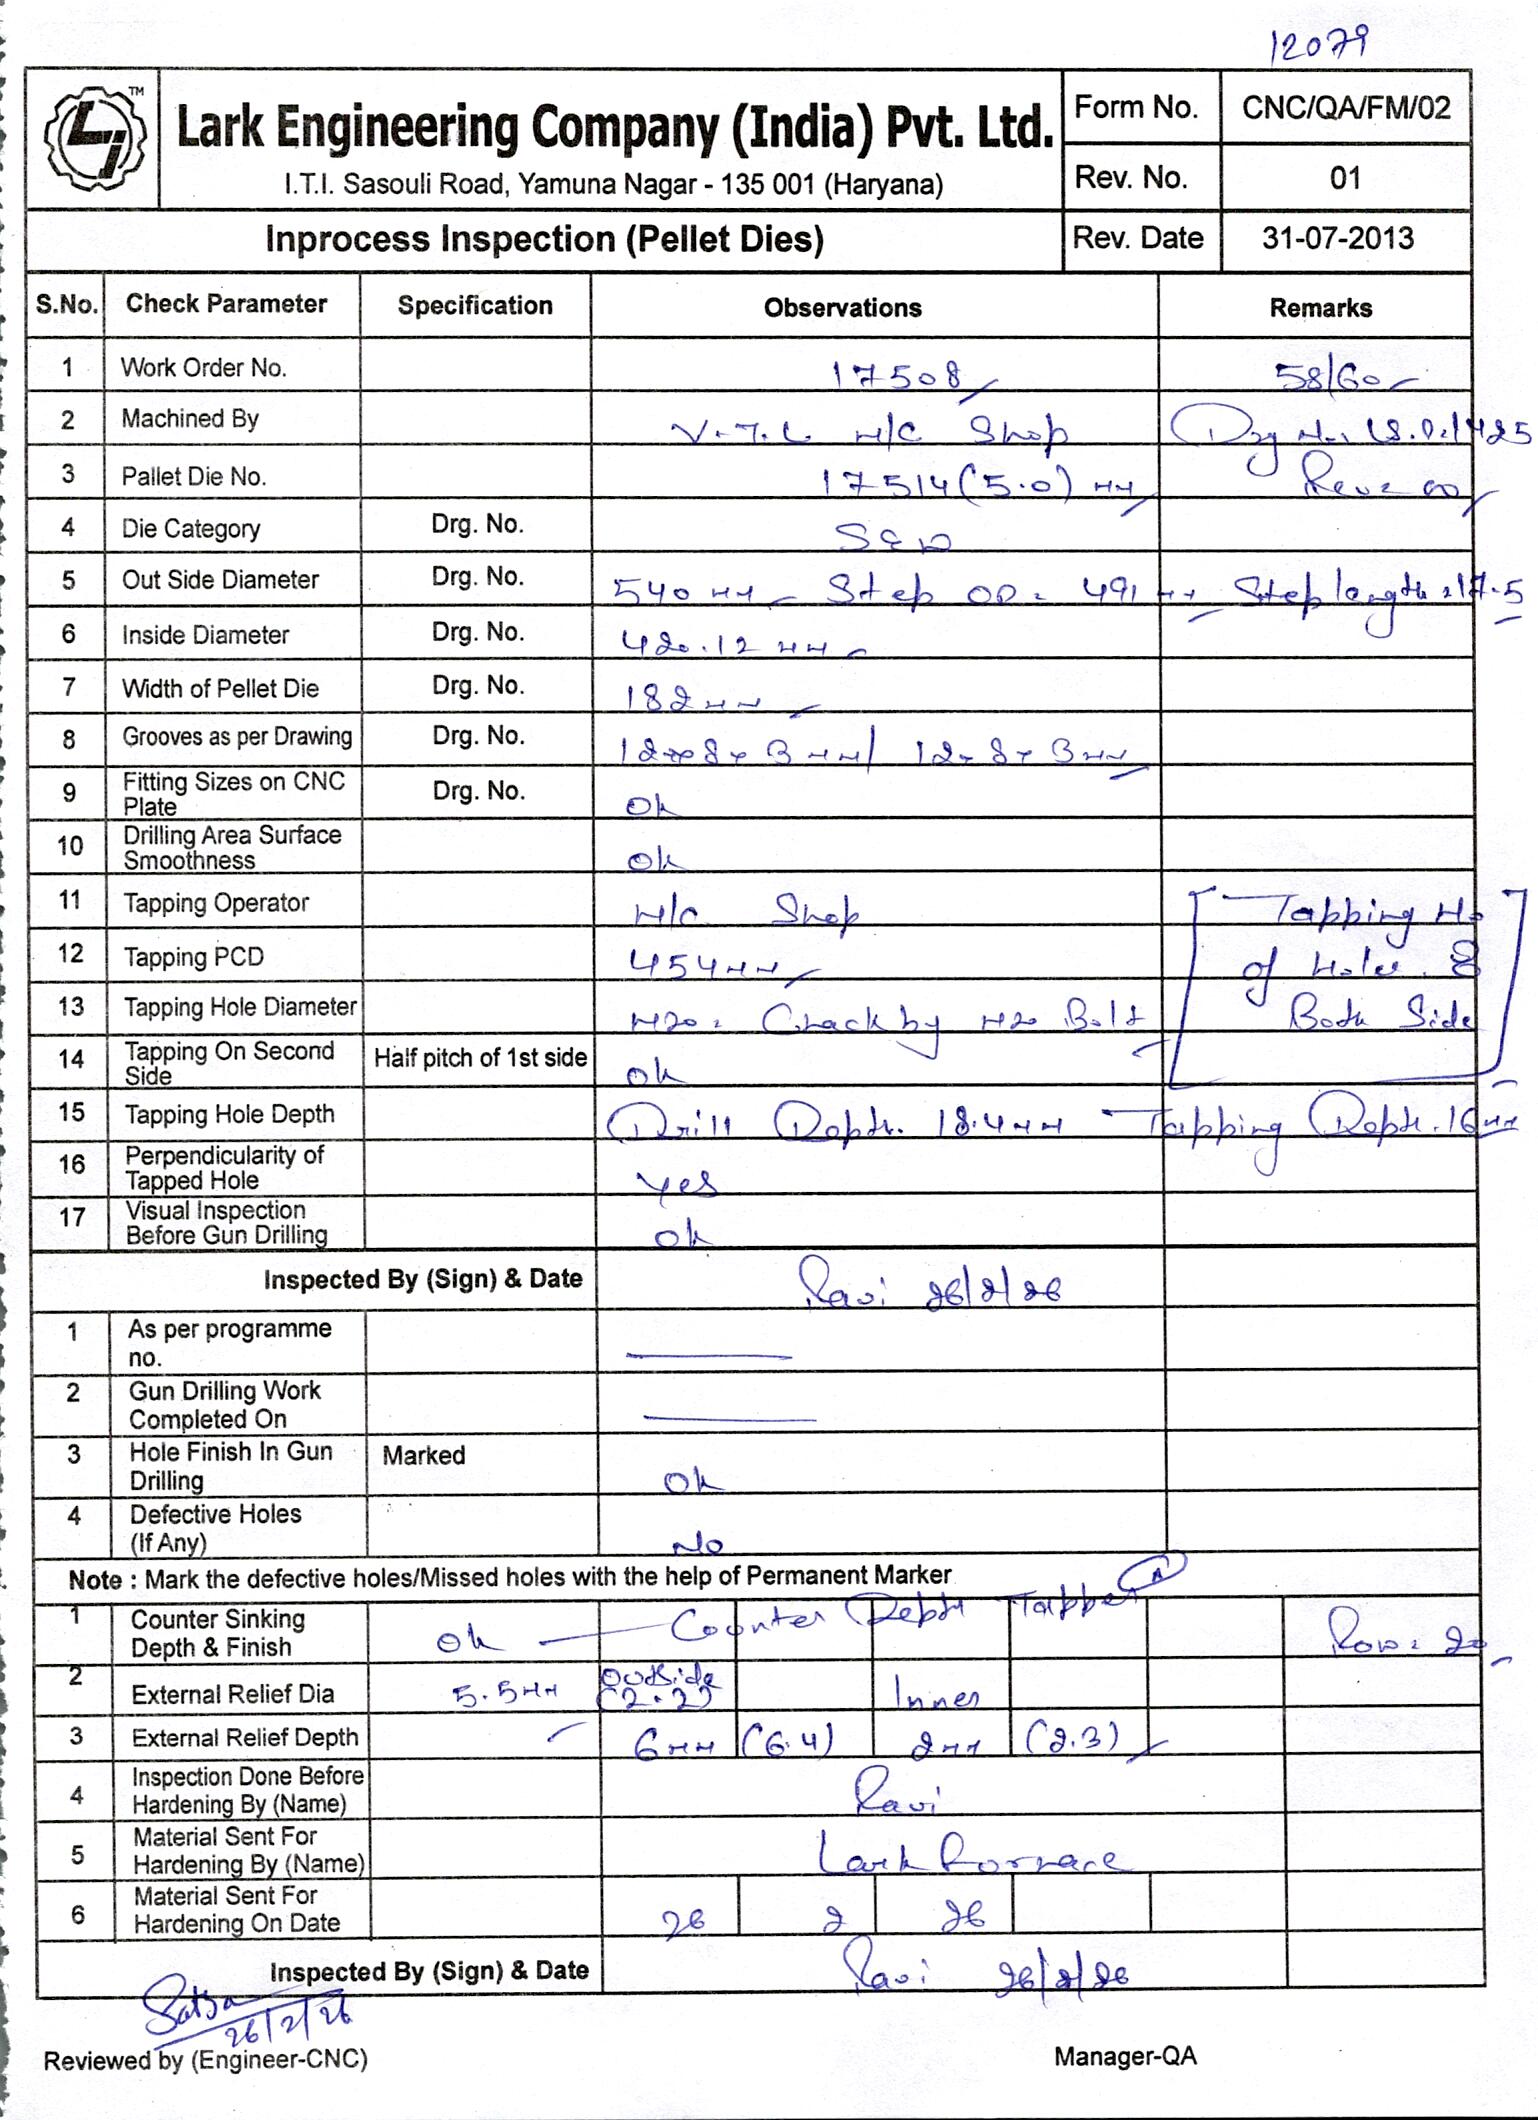 12079
TM
Lark Engineering Company (India) Pvt. Ltd.
I.T.I. Sasouli Road, Yamuna Nagar - 135 001 (Haryana)
Form No. CNC/QA/FM/02
Rev. No. 01
Inprocess Inspection (Pellet Dies) Rev. Date 31-07-2013
S.No. Check Parameter Specification Observations Remarks
1 Work Order No. 17508 58/60
2 Machined By V.T.L M/C Shop Drg No.
3 Pallet Die No. 17514 (5.0) MM Rev = 00
4 Die Category Drg. No.
5 Out Side Diameter Drg. No. 540 MM Step OD = 491 MM Step length = 17.5
6 Inside Diameter Drg. No. 420.12 MM
7 Width of Pellet Die Drg. No. 182 MM
8 Grooves as per Drawing Drg. No. 12 x 8 x 3 MM / 12 x 8 x 3 MM
9 Fitting Sizes on CNC Plate Drg. No. Ok
10 Drilling Area Surface Smoothness Ok
11 Tapping Operator M/C Shop Tapping No
12 Tapping PCD 454 MM of Holes 8
13 Tapping Hole Diameter M20 = Check by M20 Bolt Both Side
14 Tapping On Second Side Half pitch of 1st side Ok
15 Tapping Hole Depth Drill Depth. 18.4 MM Tapping Depth. 16 MM
16 Perpendicularity of Tapped Hole Yes
17 Visual Inspection Before Gun Drilling Ok
Inspected By (Sign) & Date Ravi 26/2/26
1 As per programme no.
2 Gun Drilling Work Completed On
3 Hole Finish In Gun Drilling Marked Ok
4 Defective Holes (If Any) No
Note : Mark the defective holes/Missed holes with the help of Permanent Marker
1 Counter Sinking Depth & Finish Ok Counter Depth Tapper Row = 20
2 External Relief Dia 5.5 MM Outside (2.2) Inner
3 External Relief Depth 6 MM (6.4) 2 MM (2.3)
4 Inspection Done Before Hardening By (Name) Ravi
5 Material Sent For Hardening By (Name) Lark Fornace
6 Material Sent For Hardening On Date 26 2 26
Inspected By (Sign) & Date Ravi 26/2/26
26/2/26
Reviewed by (Engineer-CNC) Manager-QA